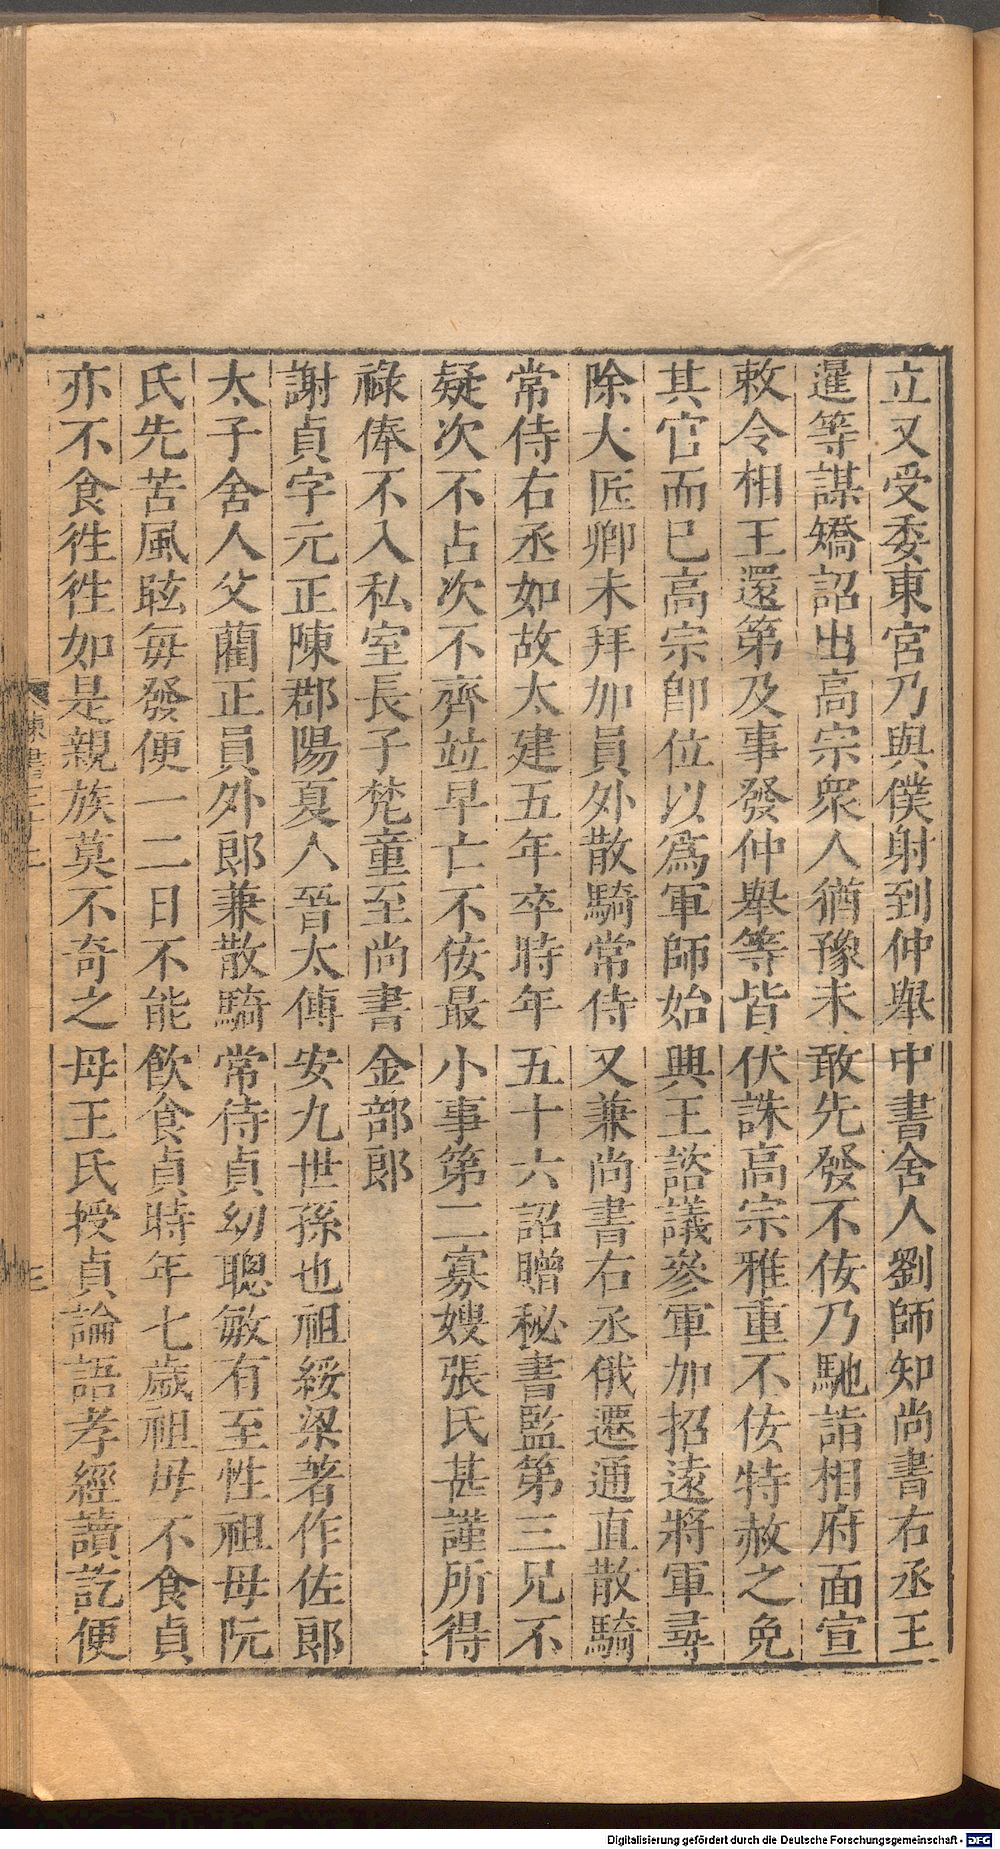 立又受委東宮乃與僕射到仲舉中書舍人劉師知尚書右丞王
暹等謀矯詔出高宗衆人猶豫未敢先發不佞乃馳詣相府面宣
敕令相王還第及事發仲舉等皆伏誅高宗雅重不佞特赦之免
其官而已高宗卽位以爲軍師始興王諮議參軍加招遠將軍尋
除大匠卿未拜加員外散騎常侍又兼尚書右丞俄遷通直散騎
常侍右丞如故太建五年卒時年五十六詔贈秘書監第三兄不
疑次不占次不齊竝早亡不佞最小事第二寡嫂張氏甚謹所得
祿俸不入私室長子梵童至尚書金部郎
謝貞字元正陳郡陽夏人晉太傅安九世孫也祖綏梁著作佐郎
太子舍人父藺正員外郎兼散騎常侍貞幼聰敏有至性祖母阮
氏先苦風眩每發便一二日不能飮食貞時年七歲祖母不食貞
亦不食徃徃如是親族莫不奇之母王氏授貞論語孝經讀訖便
Digitalisierung gefördert durch die Deutsche Forschungsgemeinschaft - DFG